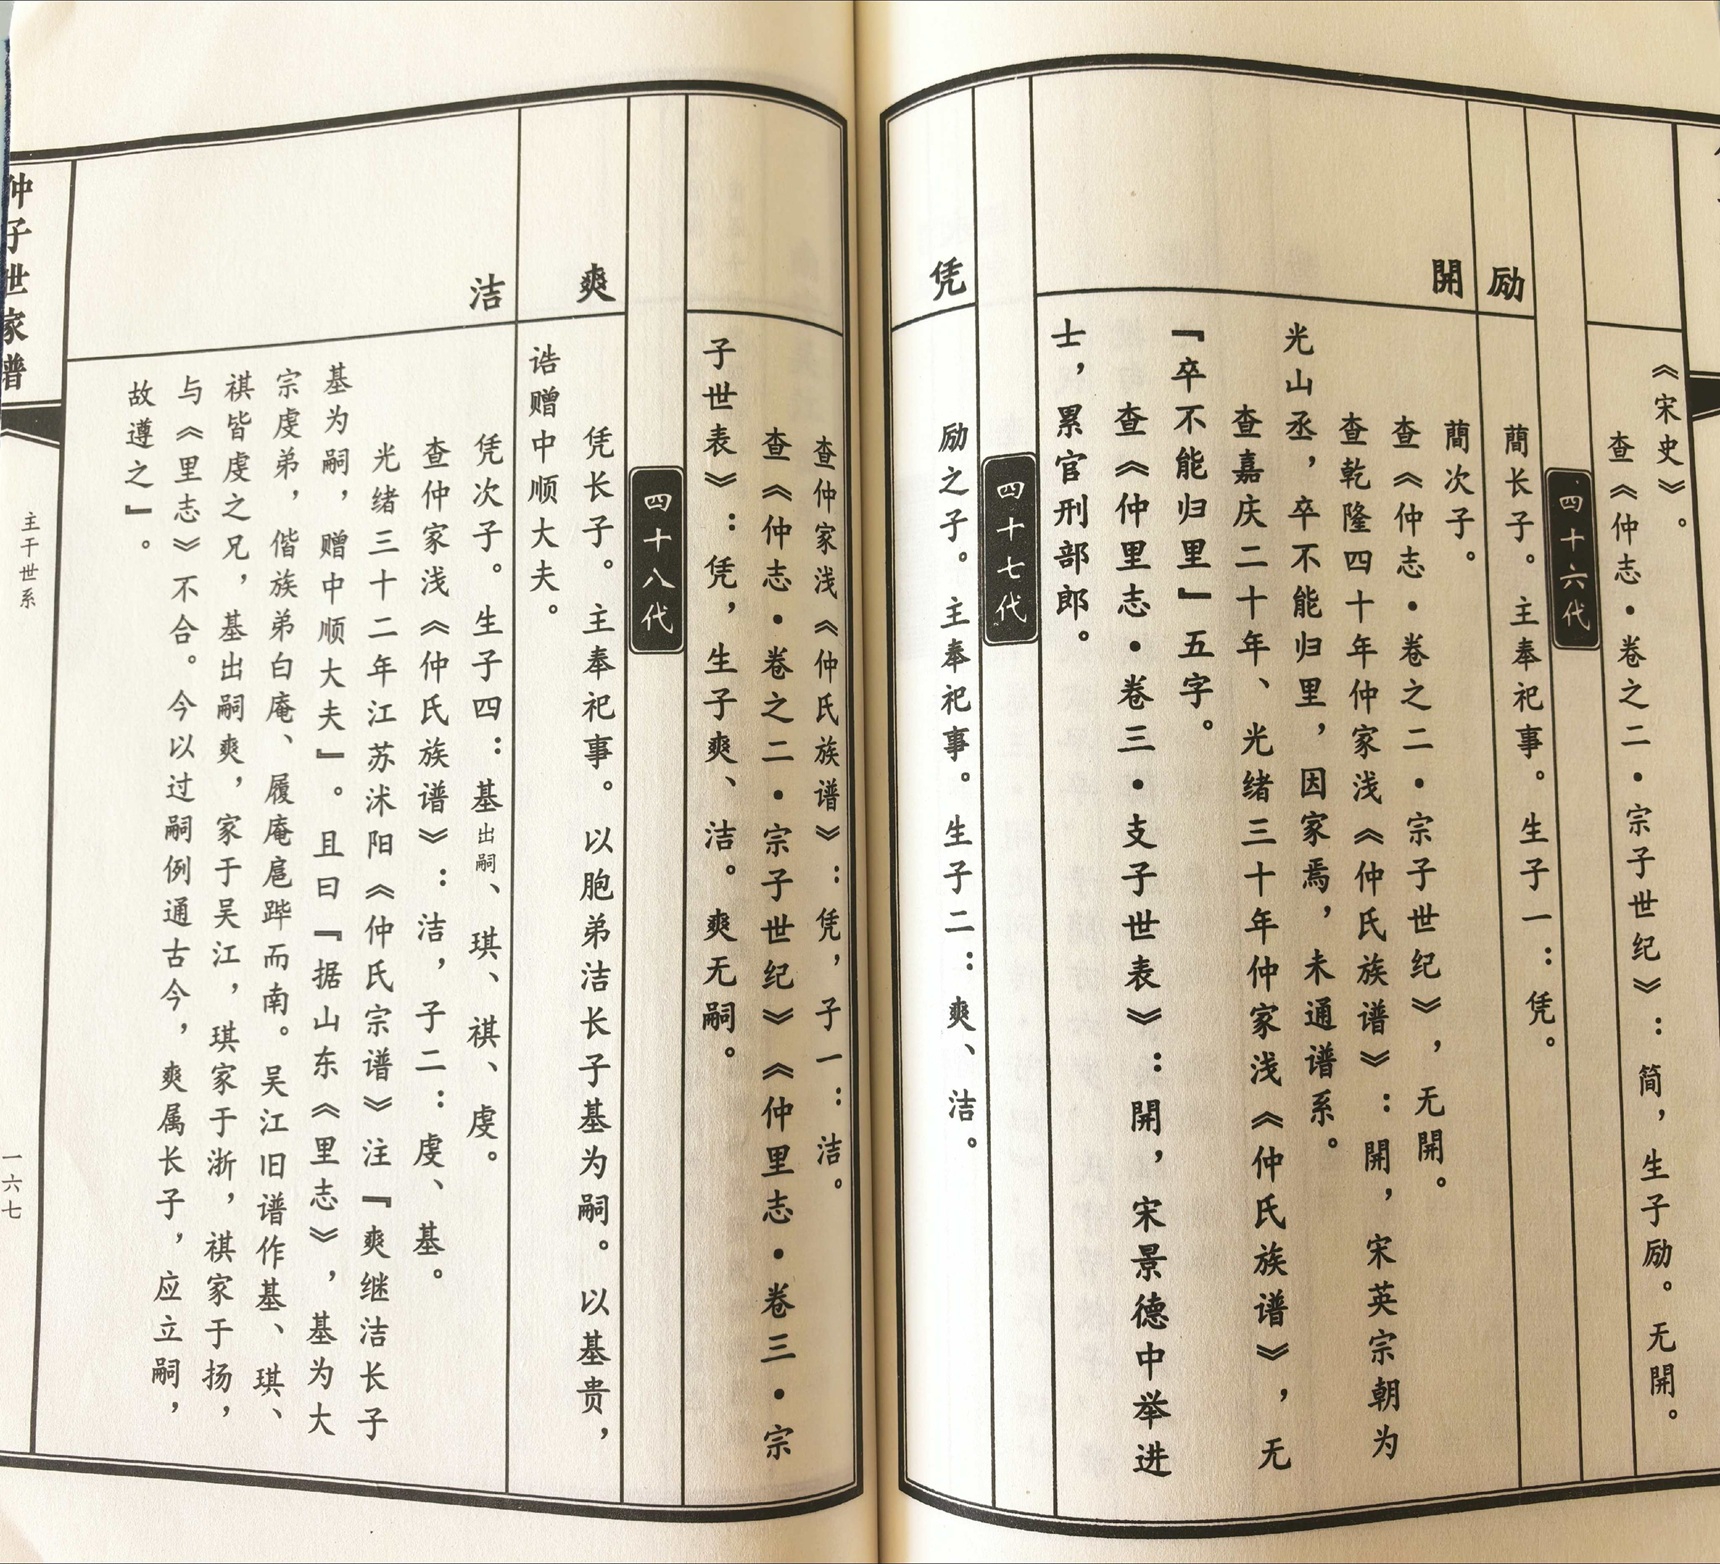 《宋史》。
查《仲志·卷之二·宗子世纪》：简，生子励。无開。
四十六代
励
蕳长子。主奉祀事。生子一：凭。
開
蕳次子。
查《仲志·卷之二·宗子世纪》，无開。
查乾隆四十年仲家浅《仲氏族谱》：開，宋英宗朝为
光山丞，卒不能归里，因家焉，未通谱系。
查嘉庆二十年、光绪三十年仲家浅《仲氏族谱》，无
『卒不能归里』五字。
查《仲里志·卷三·支子世表》：開，宋景德中举进
士，累官刑部郎。
四十七代
凭
励之子。主奉祀事。生子二：爽、洁。
查仲家浅《仲氏族谱》：凭，子一：洁。
查《仲志·卷之二·宗子世纪》《仲里志·卷三·宗
子世表》：凭，生子爽、洁。爽无嗣。
四十八代
爽
凭长子。主奉祀事。以胞弟洁长子基为嗣。以基贵，
诰赠中顺大夫。
洁
凭次子。生子四：基出嗣、琪、祺、虔。
查仲家浅《仲氏族谱》：洁，子二：虔、基。
光绪三十二年江苏沭阳《仲氏宗谱》注『爽继洁长子
基为嗣，赠中顺大夫』。且曰『据山东《里志》，基为大
宗虔弟，偕族弟白庵、履庵扈跸而南。吴江旧谱作基、琪、
祺皆虔之兄，基出嗣爽，家于吴江，琪家于浙，祺家于扬，
与《里志》不合。今以过嗣例通古今，爽属长子，应立嗣，
故遵之』。
仲子世家谱
主干世系
一六七